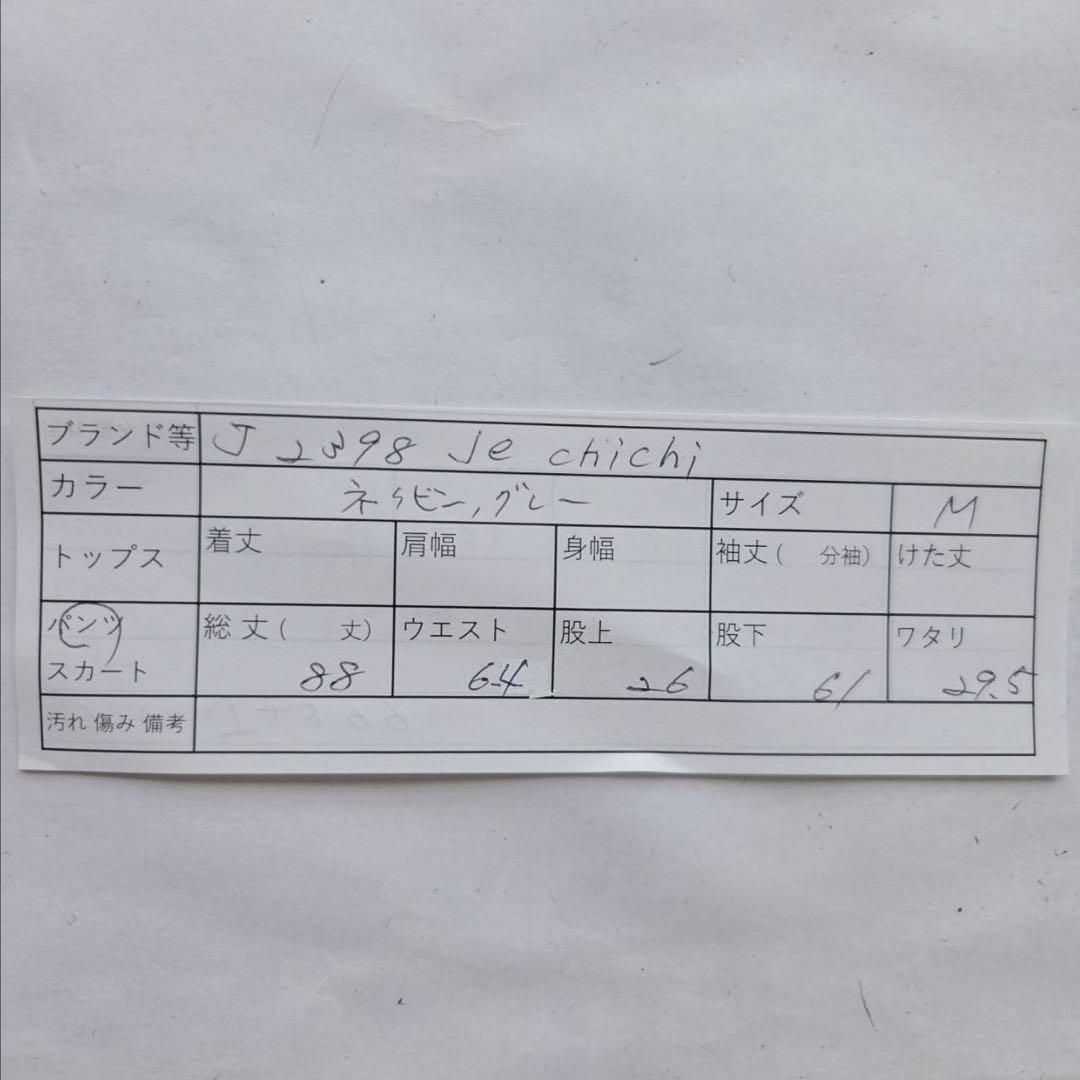 ブランド等 J 2398 Je chichi
カラー ネイビー, グレー サイズ M
トップス 着丈 肩幅 身幅 袖丈( 分袖) けた丈
パンツ 総丈( 丈) ウエスト 股上 股下 ワタリ
スカート 88 64 26 61 29.5
汚れ 傷み 備考